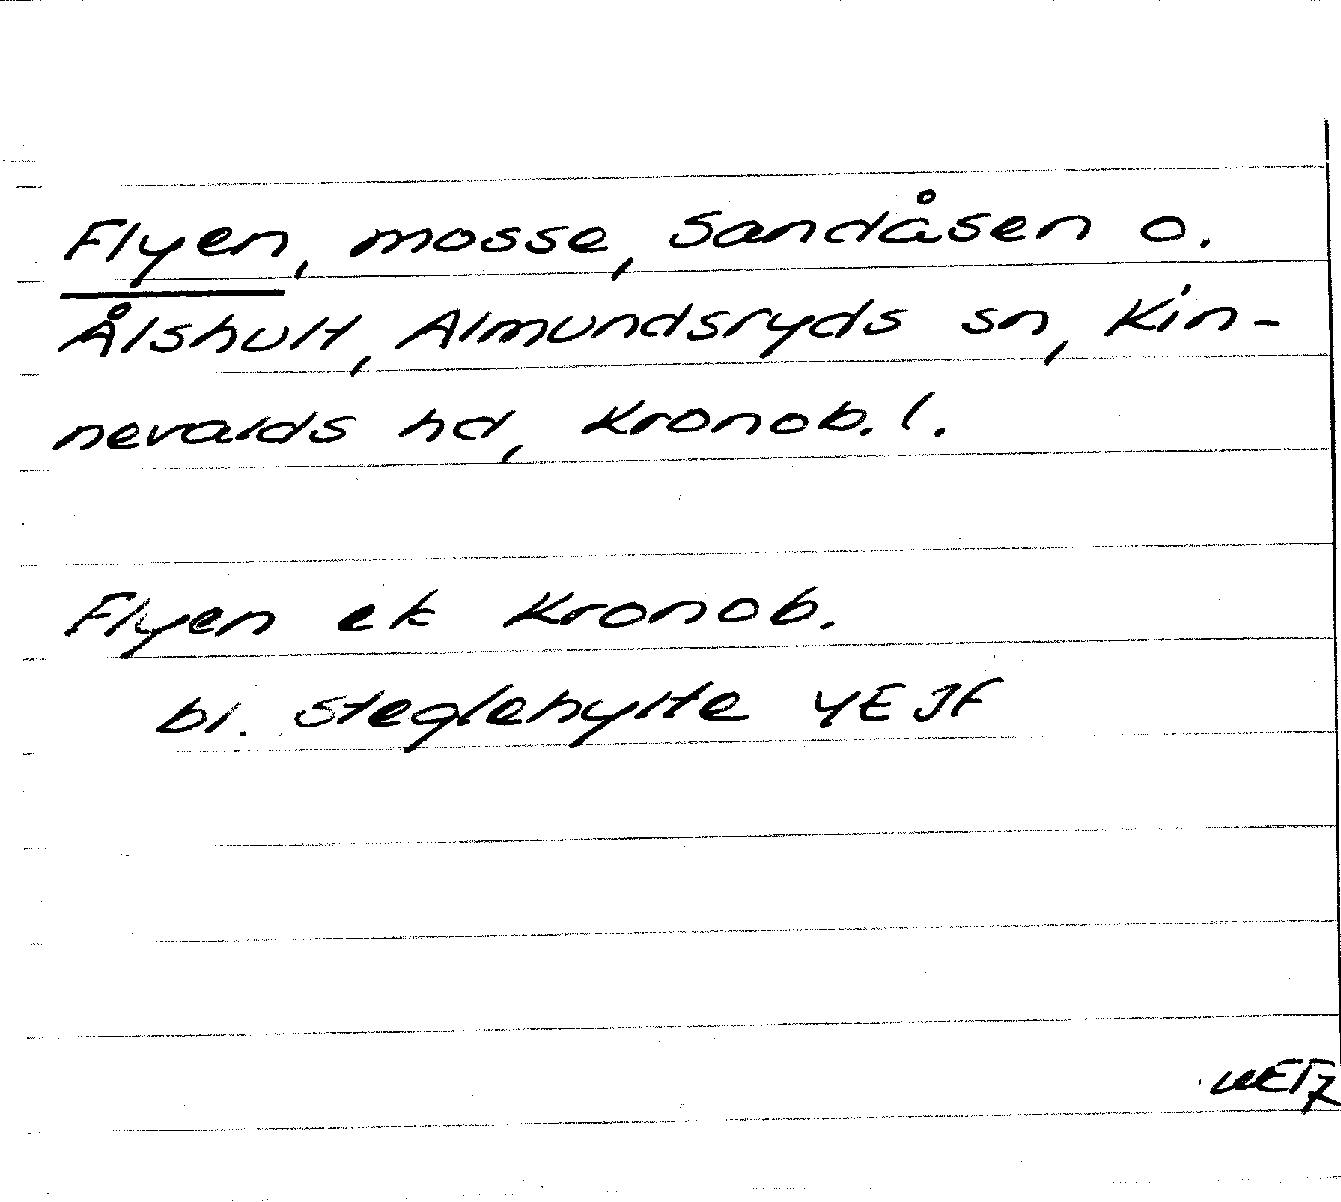 Flyen, mosse, Sandåsen o.
Ålshult, Almundsryds sn, Kin-
nevalds hd, Kronob. l.
Flyen ek Kronob.
bl. Steglehylte YE JF